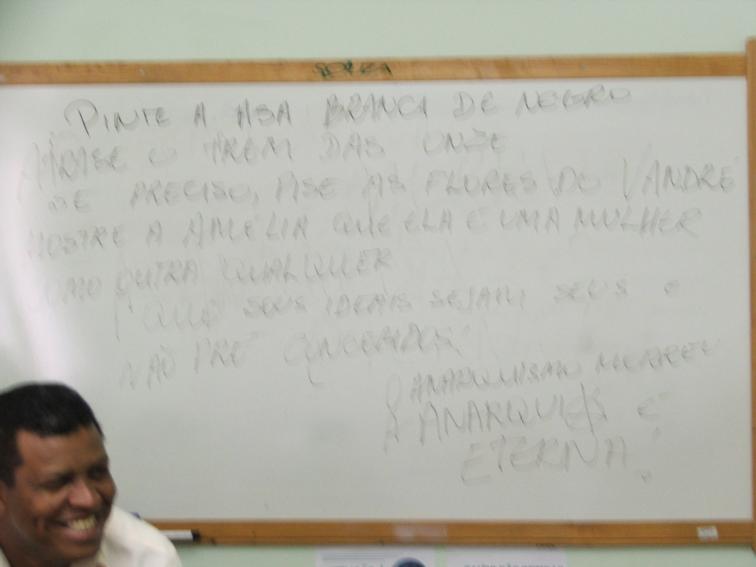 PINTE A ASA BRANCA DE NEGRO
ATRASE O TREM DAS ONZE
SE PRECISO, PISE AS FLORES DO VANDRÉ
MOSTRE A AMÉLIA QUE ELA É UMA MULHER
COMO OUTRA QUALQUER
QUE SEUS IDEAIS SEJAM SEUS E
NÃO PRÉ CONCEBIDOS
MORREU
A ANARQUIA É
ETERNA!